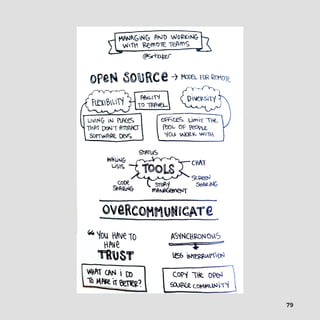 MANAGING AND WORKING
WITH REMOTE TEAMS
OPEN SOURCE → MODEL FOR REMOTE
FLEXIBILITY
ABILITY
TO TRAVEL
DIVERSITY
LIVING IN PLACES
THAT DON'T ATTRACT
SOFTWARE DEVS
OFFICES LIMIT THE
POOL OF PEOPLE
YOU WORK WITH
STATUS
MAILING
LISTS
TOOLS
CHAT
CODE
SHARING
STORY
MANAGEMENT
SCREEN
SHARING
OVERCOMMUNICATE
“YOU HAVE TO
HAVE
TRUST
ASYNCHRONOUS
LESS INTERRUPTION
WHAT CAN I DO
TO MAKE IT BETTER?
COPY THE OPEN
SOURCE COMMUNITY
79